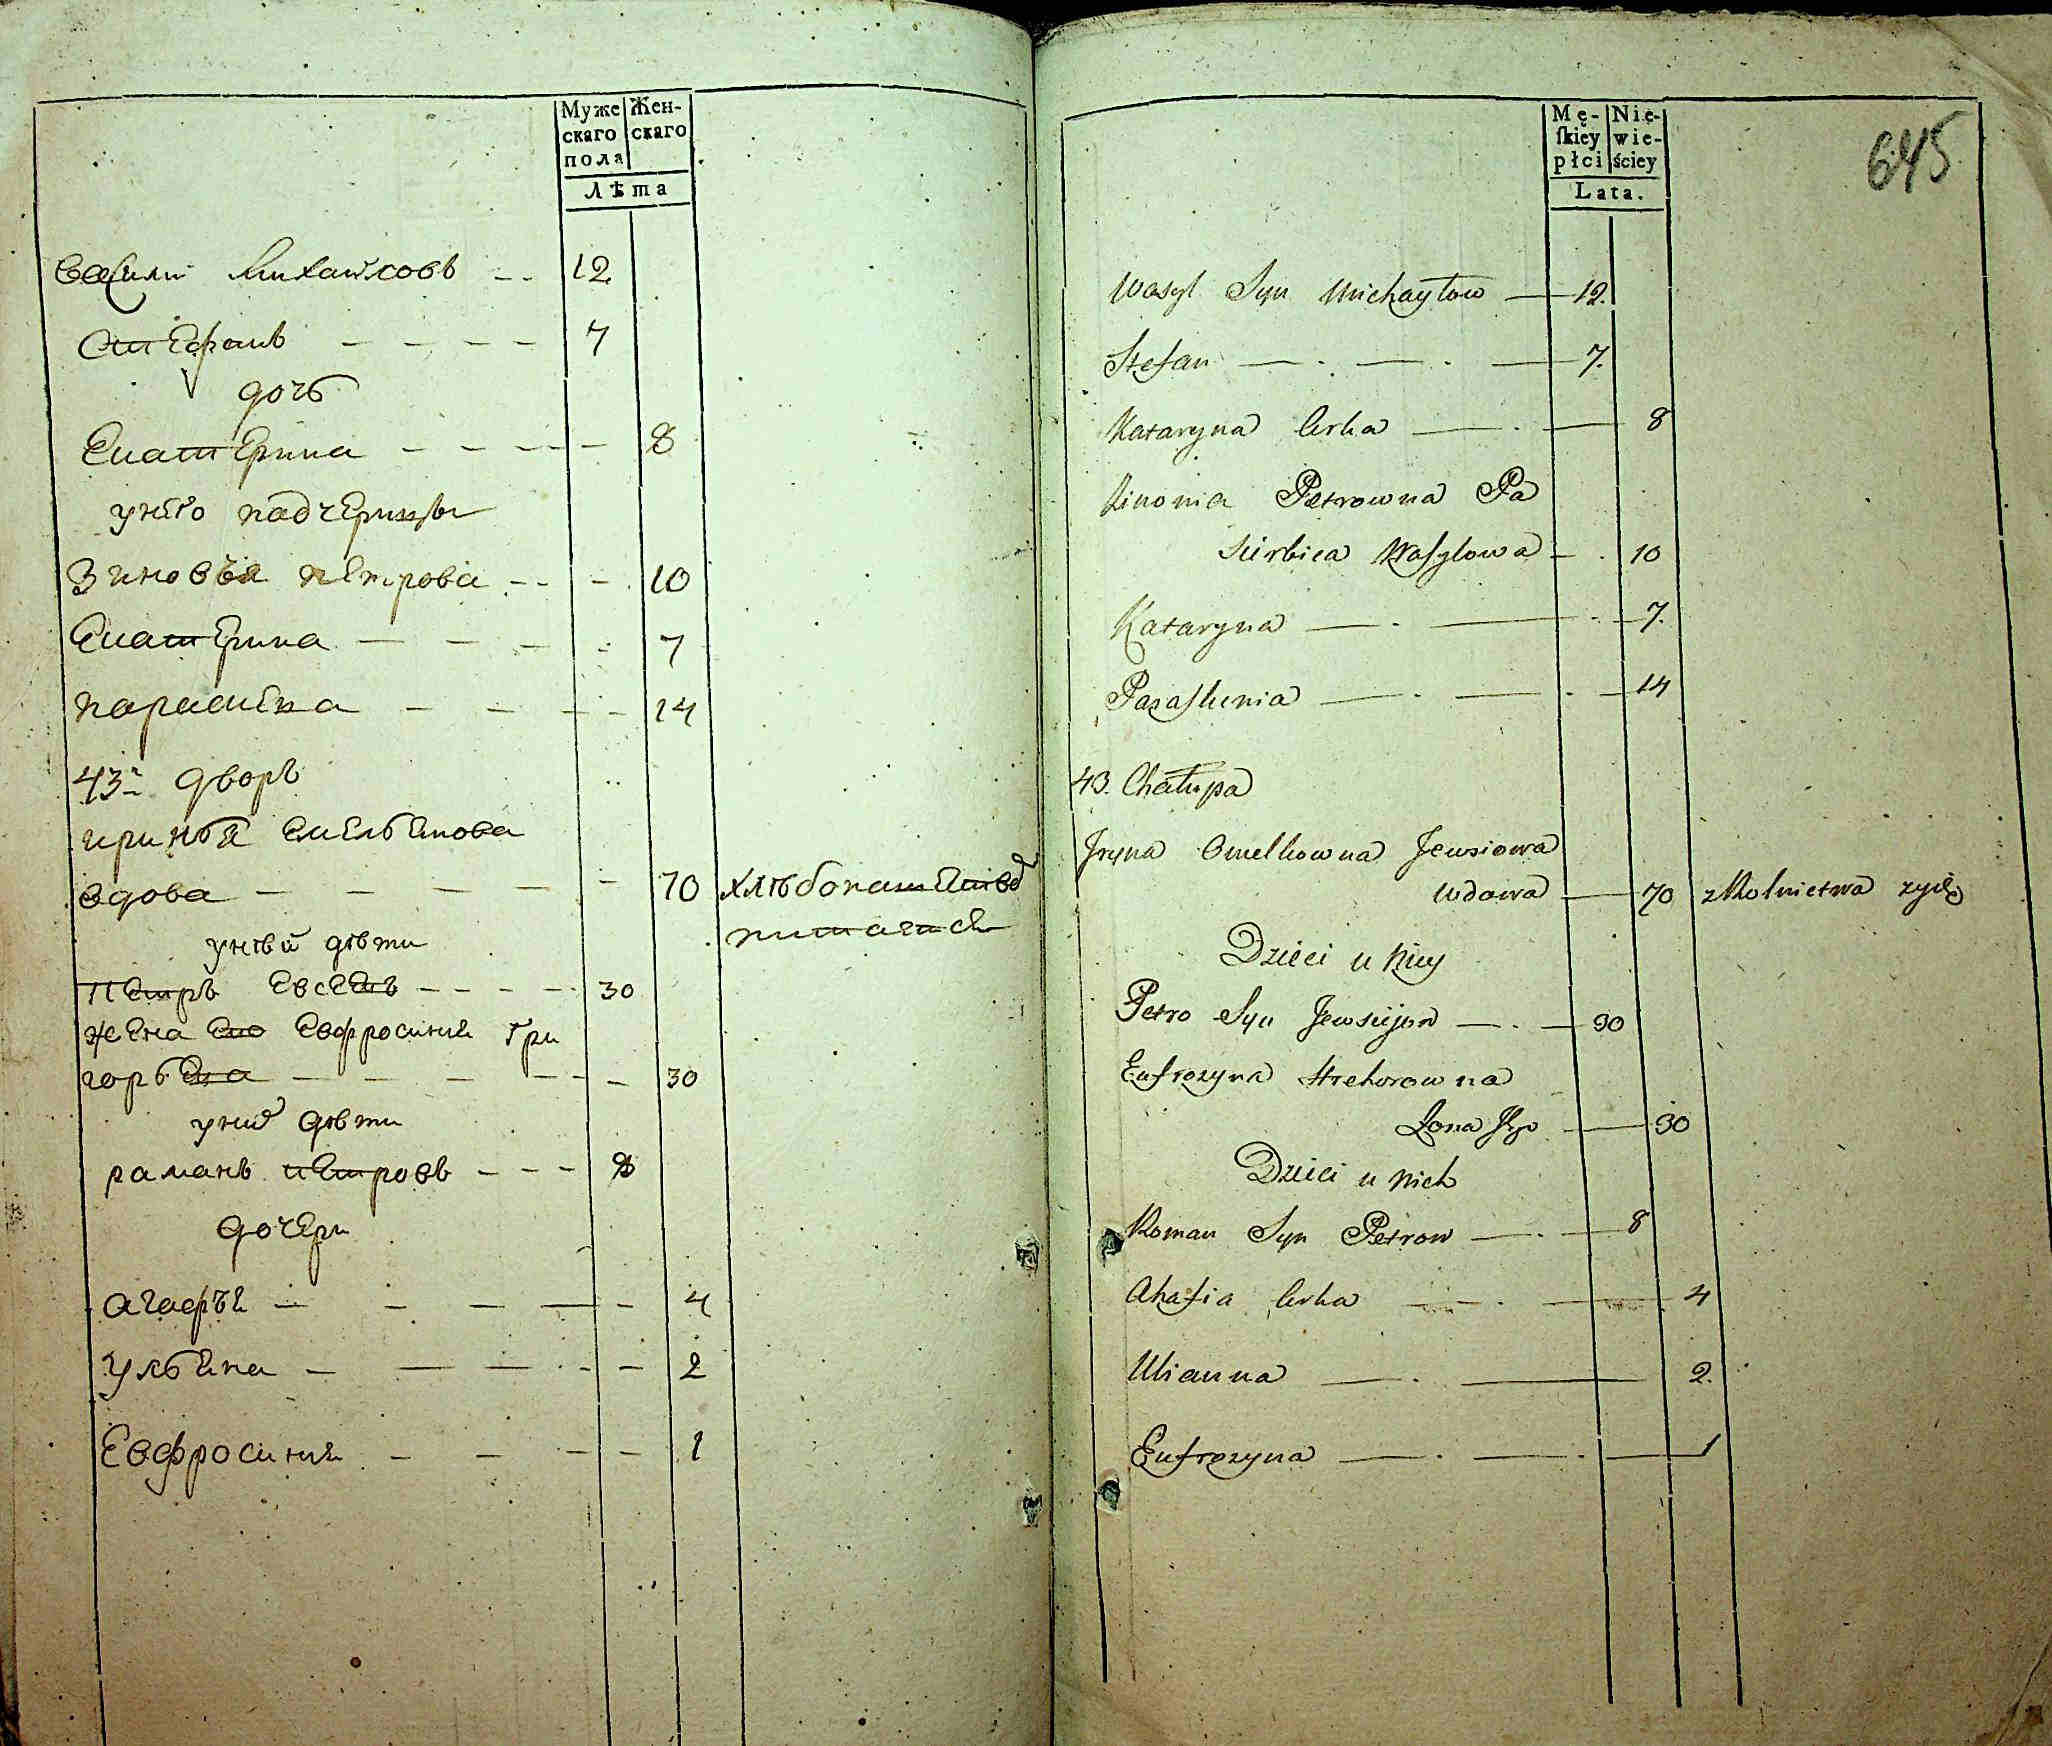 Муже Жен-
скаго скаго
пола
Лѣта
Василий Михайловъ 12
Степанъ 7
дочь
Екатерина 8
у него падчерицы
Зиновья петрова 10
Екатерина 7
параскева 14
43й дворъ
иринья емельянова
вдова 70 хлѣбопашествомъ
питается
у ней дѣти
петръ евсеевъ 30
жена его евфросиния гри
горьева 30
у нихъ дѣти
раманъ петровъ 8
дочери
агафья 4
ульяна 2
Евфросиния 1
645
Mę- Nie-
ſkiey wie-
płci ściey
Lata.
Wasyl Syn Michayłow 12.
Stefan 7.
Kataryna Corka 8
Zinowia Petrowna Pa
sierbica Wasylowa 10
Kataryna 7.
Paraskewia 14
43. Chałupa
Jryna Omelkowna Jewsiowa
wdowa 70 z Rolnictwa zyie
Dzieci u Niey
Petro Syn Jewsiejow 30
Eufrozyna Hrehorowna
Zona Jego 30
Dzieci u Nich
Roman Syn Petrow 8
Ahafia Corka 4
Ulianna 2.
Eufrozyna 1